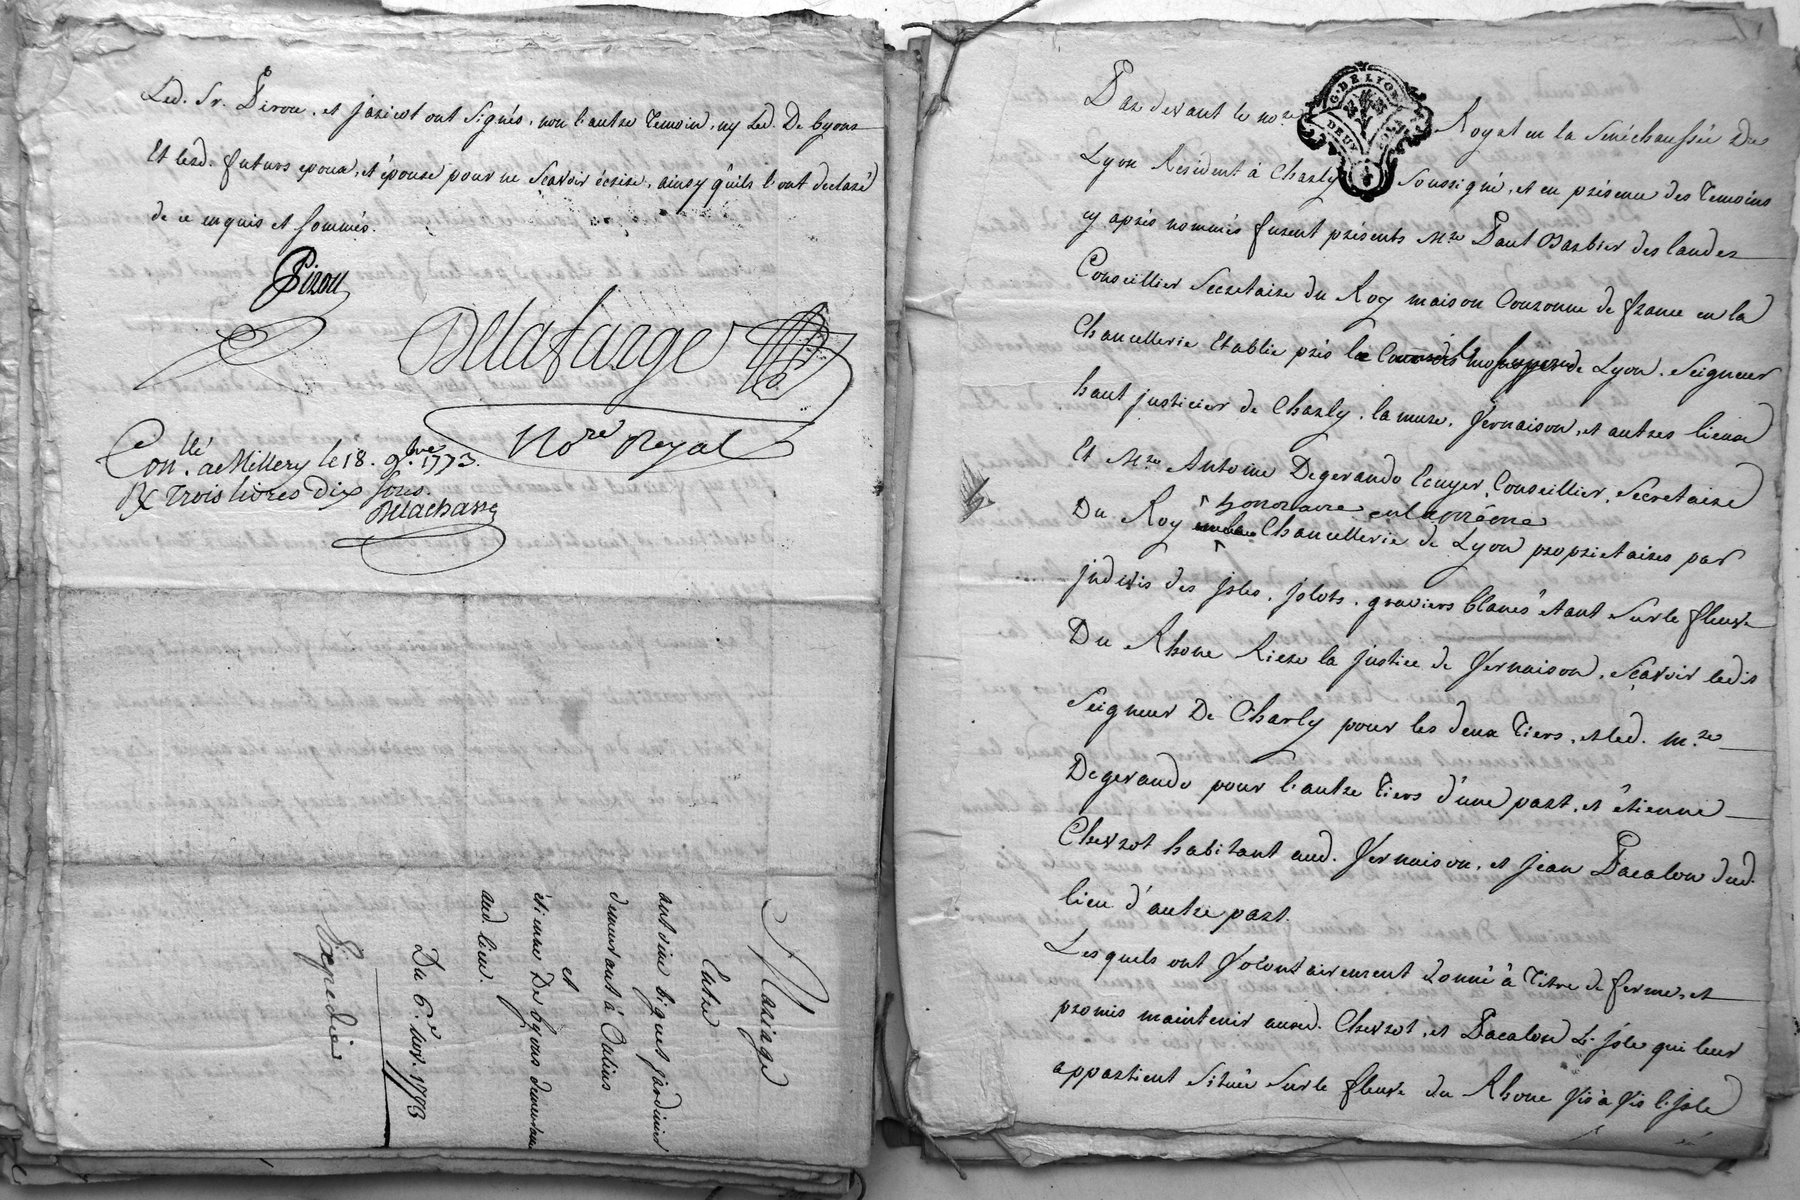 Led. Sr. Pirou, et jaricot ont signés, non l'autre Temoin, ny Led. De byons
Et lesd. futurs epoux, et épouse pour ne Scavoir écrire, ainsy qu'ils l'ont declaré
de ce enquis et sommés.
Pirou
Delafarge
Nore Royal
Conllé. a Millery le 18. 9bre 1773.
Rx Trois livres Dix sous.
Delachass
Mariage
Entre
antoine biguet jardinier
demeurant à Oulins
et
étienne De byons demeurante
aud lieu.
Du 6e. nov. 1773
Expedié
G. DE LYON
DEUX SOLS
Par devant le nore Royal en la Sénéchaussée De
Lyon Résident à Charly Soussigné, et en présence des Temoins
cy après nommés furent présents Mre Paul Barbier des landes
Conseiller Secretaire du Roy maison Couronne de france en la
Chancellerie Etablie près la de Lyon, Seigneur
haut justicier de Charly, la mure, Vernaison, et autres lieux
Et Mre Antoine Degerando Ecuyer, Conseiller, Secretaire
honoraire en la
Du Roy Chancellerie de Lyon proprietaires par
jndivis des jsles, jslots, graviers blancs étant Sur le fleuve
Du Rhone Riere la justice de Vernaison, Scavoir ledit
Seigneur De Charly pour les deux Tiers, et led. mre
Degerando pour l'autre Tiers d'une part, et étienne
Chevrot habitant aud. Vernaison, et jean Pacalon dud.
lieu d'autre part.
Lesquels ont Volontairement donné à Titre de ferme, et
promis maintenir auxd. Chevrot, et Pacalon L'jsle qui leur
appartient Située Sur le fleuve du Rhone Vis à Vis l'jsle